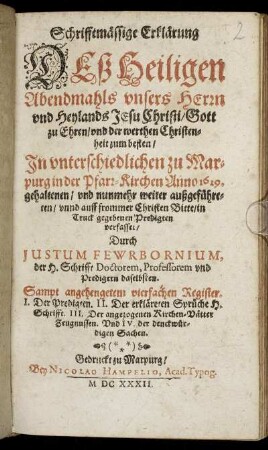 2
Schrifftmässige Erklärung
DEß Heiligen
Abendmahls vnsers HErrn
vnd Heylands JEsu Christi/Gott
zu Ehren/vnd der werthen Christen-
heit zum besten/
In vnterschiedlichen zu Mar-
purg in der Pfarr-Kirchen Anno 1629.
gehaltenen/ vnd nunmehr weiter außgeführe-
ten/ vnnd auff frommer Christen Bitte/in
Truck gegebenen Predigten
verfasset/
Durch
JUSTUM FEWRBORNIUM,
der H. Schrifft Doctorem, Professorem vnd
Predigern daselbsten.
Sampt angehengetem vierfachen Register.
I. Der Predigten. II. Der erklärten Sprüche H.
Schrifft. III. Der angezogenen Kirchen-Vätter
Zeugnussen. Vnd IV. der denckwür-
digen Sachen.
(***)
Gedruckt zu Marpurg/
Bey NICOLAO HAMPELIO, Acad. Typog.
M DC XXXII.